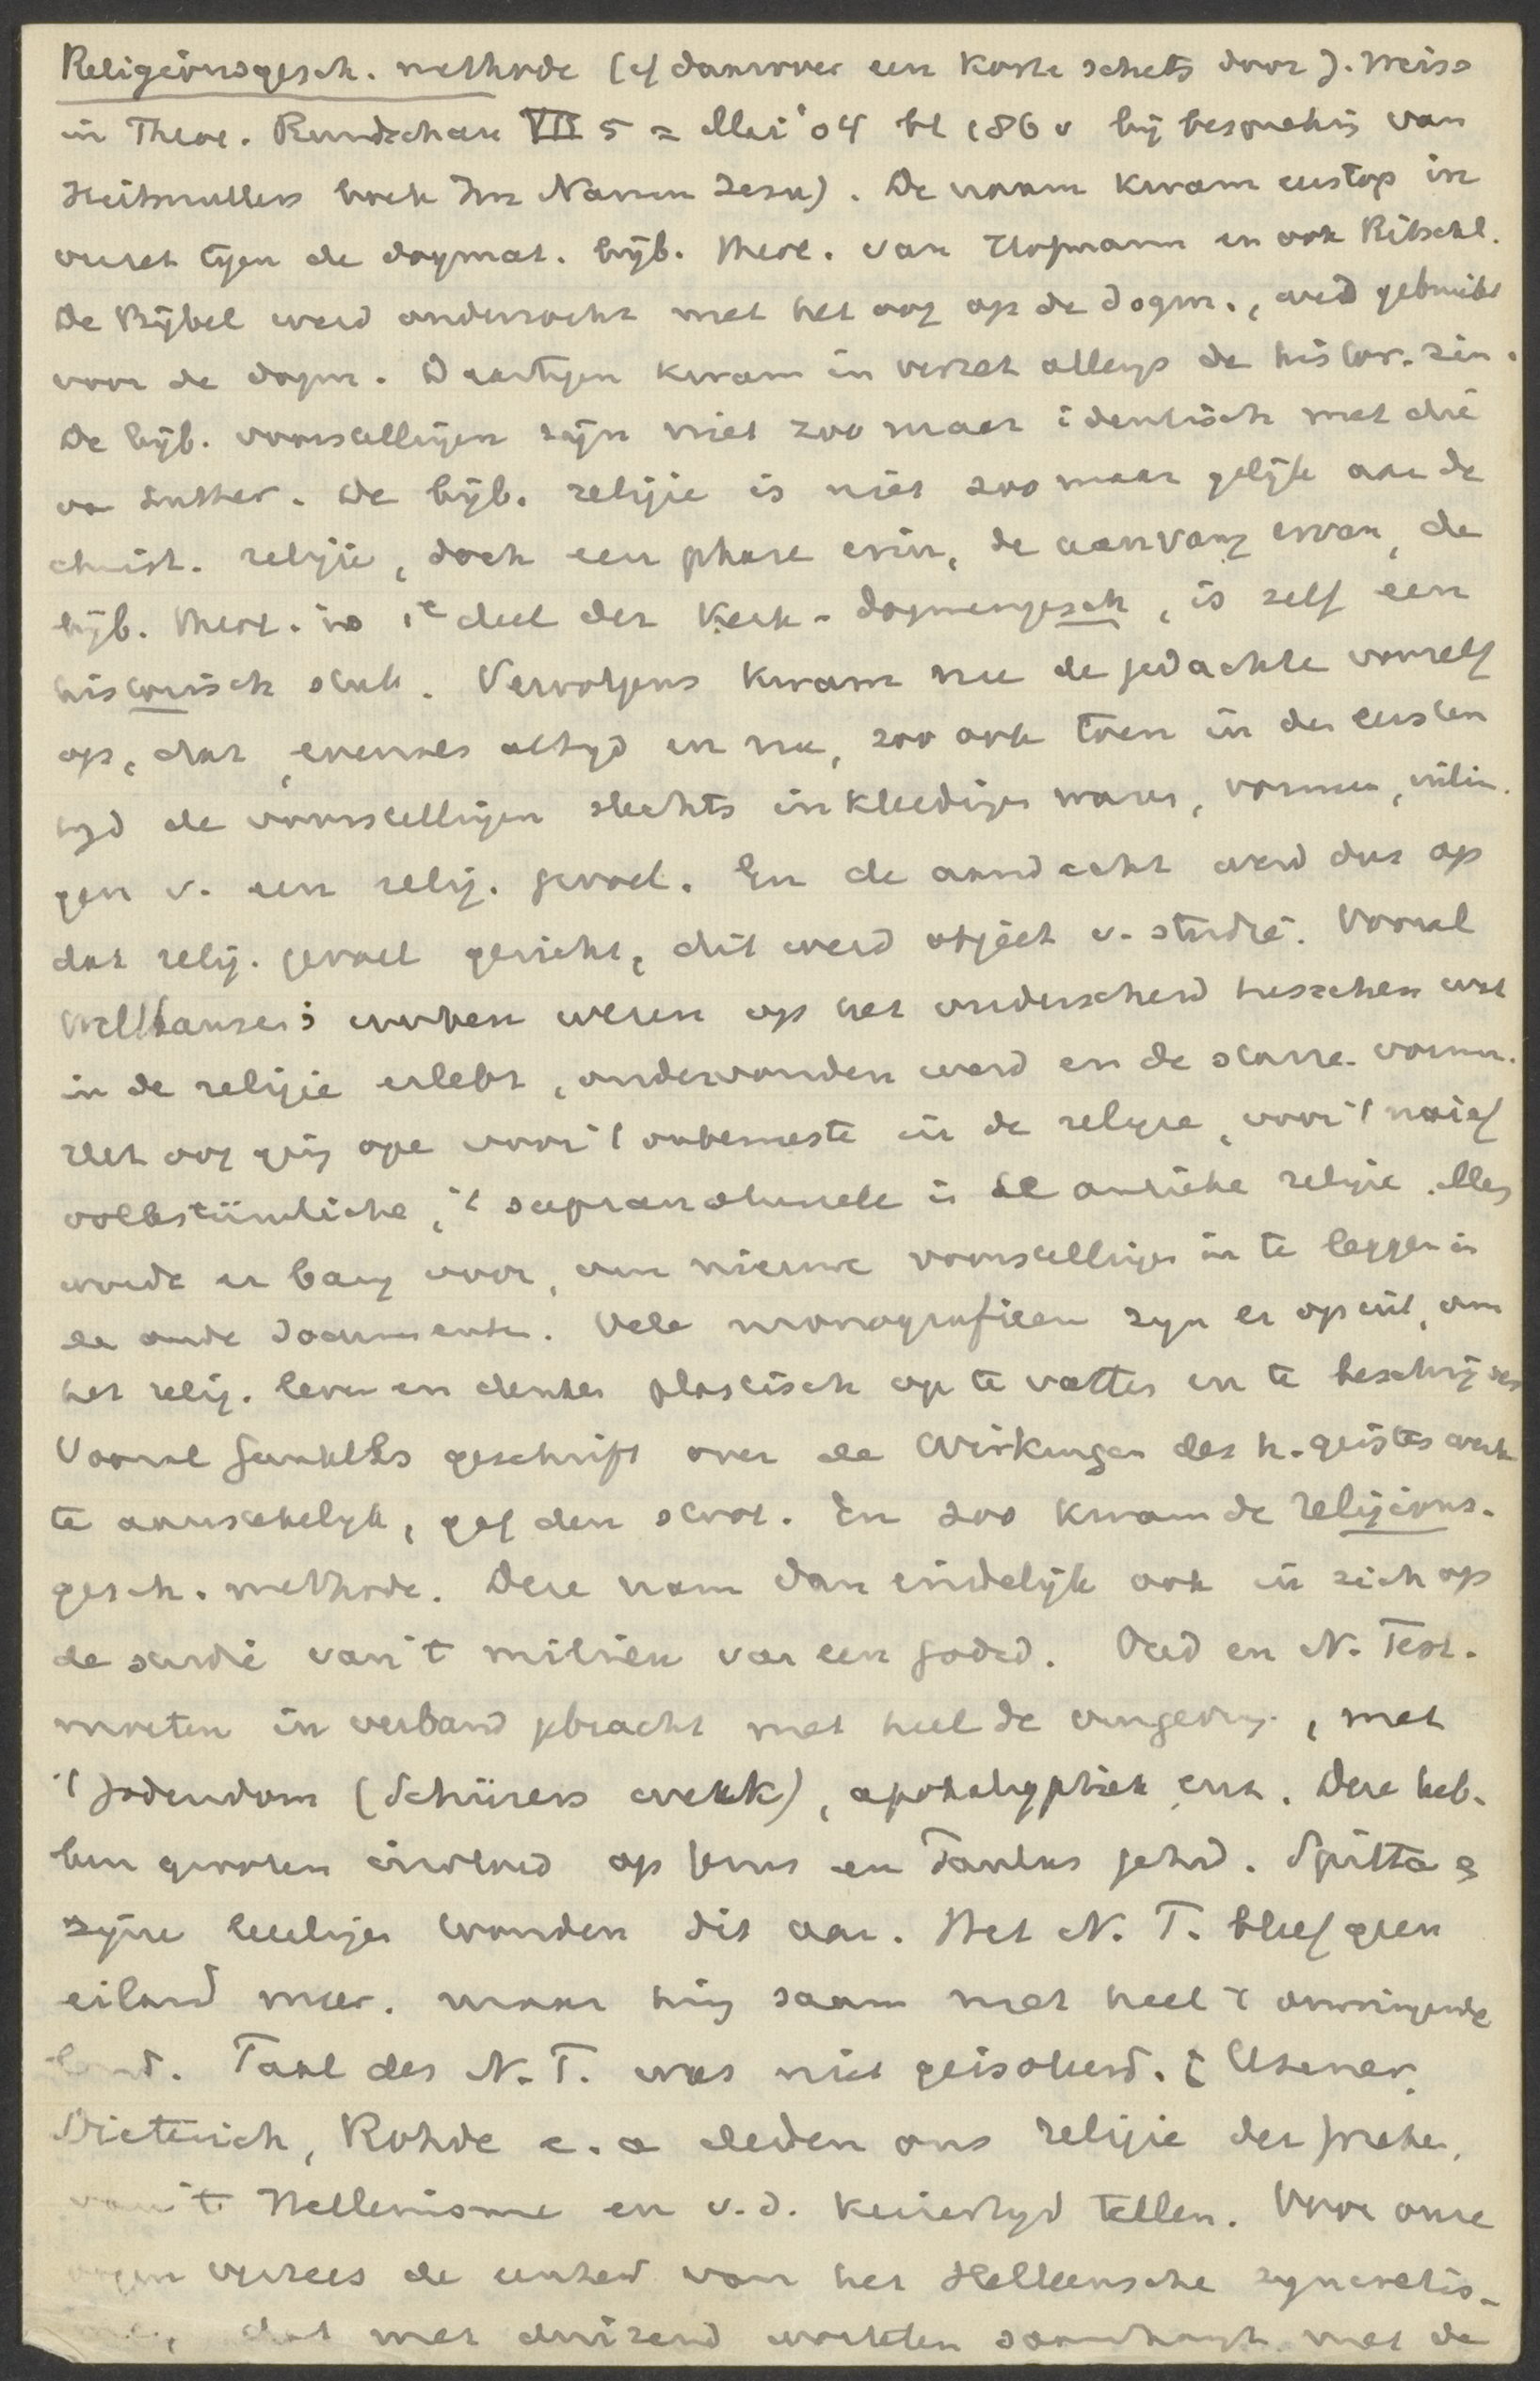 Religionsgesch. methode (cf daarover een korte schets door J. Weiss
in Theol. Rundschau VII 5 = Mei '04 bl 186 v bij bespreking van
Heitmullers boek Im Namen Jesu). De naam kwam eerst op in
verzet tgen de dogmat. bijb. theol. van Hofmann en ook Ritschl.
De Bijbel werd onderzocht met het oog op de dogm., werd gebruikt
voor de dogm. Daartegen kwam in verzet allengs de histor. zin.
De bijb. voorstellingen zijn niet zoo maar identisch met die
va Luther. De bijb. religie is niet zoo maar gelijk aan de
christ. religie, doch een phase erin, de aanvang ervan, de
bijb. theol. is 1e deel der Kerk- dogmengesch, is zelf een
historisch stuk. Vervolgens kwam nu de gedachte vanzelf
op, dat, evenals altyd en nu, zoo ook toen in den eersten
tyd de voorstellingen slechts inkleedigen waren, vormen, uitin-
gen v. een relig. gevoel. En de aandacht werd dus op
dat relig. gevoel gericht, dit werd object v. studie. Vooral
Wellhausen's werken wezen op het onderscheid tusschen wat
in de religie erlebt, ondervonden werd en de starre vormen.
Het oog ging ope voor 't onbewuste in de religie, voor 't naief
volkstümliche, 't supranatureele in de antieke religie. Men
werde er bang voor, om nieuwe voorstellingen in te leggen in
de oude documenten. Vele monografieen zyn er op uit, om
het relig. leven en denken plastisch op te vatten en te beschrijven
Vooral Gunkels geschrift over de Wirkungen des h. geistes werk
te aanstekelyk, gaf den stoot. En zoo kwam de religions-
gesch. methode. Deze nam dan eindelijk ook in zich op
de studie van 't milieu van een godsd. Oud en N. Test.
moeten in verband gebracht met heel de omgeving, met
't Jodendom (Schürers werk), apokalyptiek enz. Deze heb-
ben grooten invloed op Jezus en Paulus gehad. Spitta e
zijne leerlingen toonden dit aan. Het N. T. bleef geen
eiland meer. maar hing saam met heel 't omringende
land. Taal des N. T. was niet geisoleerd. [Usener,
Dieterich, Rohde e. a deden ons religie der Grieken,
van 't Hellenisme en v. d. keizertyd tellen. Voor onze
oogen verrees de eenheid van het Helleensche syncretis-
me, dat met duizend wortelen saamhangt met de